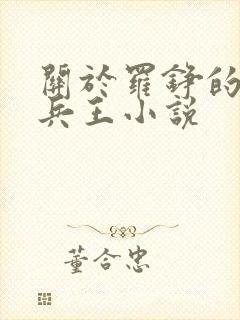 關於羅錚的
兵王小說
董合忠